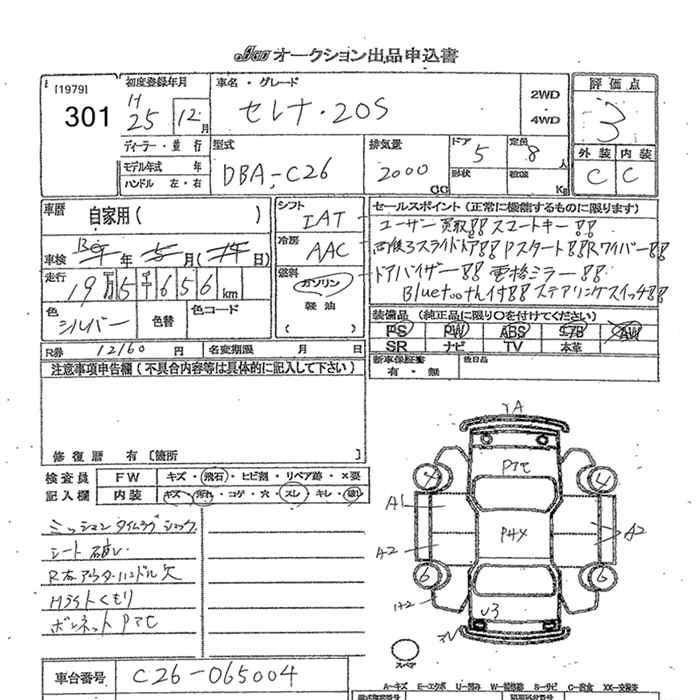 Jau オークション出品申込書
[1979]
301
初度登録年月
H
25
12月
車名・グレード
セレナ・20S
2WD
・
4WD
評価点
3
外装 内装
C C
ディーラー・並行
モデル年式 年
ハンドル 左・右
型式
DBA-C26
排気量
2000
CC
ドア
5
形状
定員
8人
積載
Kg
車歴
自家用( )
車検
年 月( 日)
走行
19万5千656km
色
シルバー
色替
色コード
シフト
IAT
冷房
AAC
燃料
ガソリン
軽油
( )
セールスポイント(正常に機能するものに限ります)
ユーザー買取!! スマートキー!!
両後スライドドア!! Pスタート!! Rワイパー!!
ドアバイザー!! 電格ミラー!!
Bluetooth付!! ステアリングスイッチ!!
装備品(純正品に限り○を付けてください)
PS PW ABS AW
SR ナビ TV 本革
新車保証書
有・無
後日品
R券 12160 円
名変期限 月 日
注意事項申告欄(不具合内容等は具体的に記入して下さい)
修復歴 有〔箇所
検査員
記入欄
FW キズ・飛石・ヒビ割・リペア跡・×要
内装 キズ・汚れ・コゲ・穴・スレ・キレ・破レ
ミッションタイムラグ ショック
シート破レ
R右アウターハンドル欠
Hライトくもり
ボンネットPTC
車台番号
C26-065004
YA
PTC
4 4
A1
P4X
A2
A2
6 6
U3
スペア
A—キズ E—エクボ U—凹み W—補修跡 S—サビ C—腐食 XX—交換済